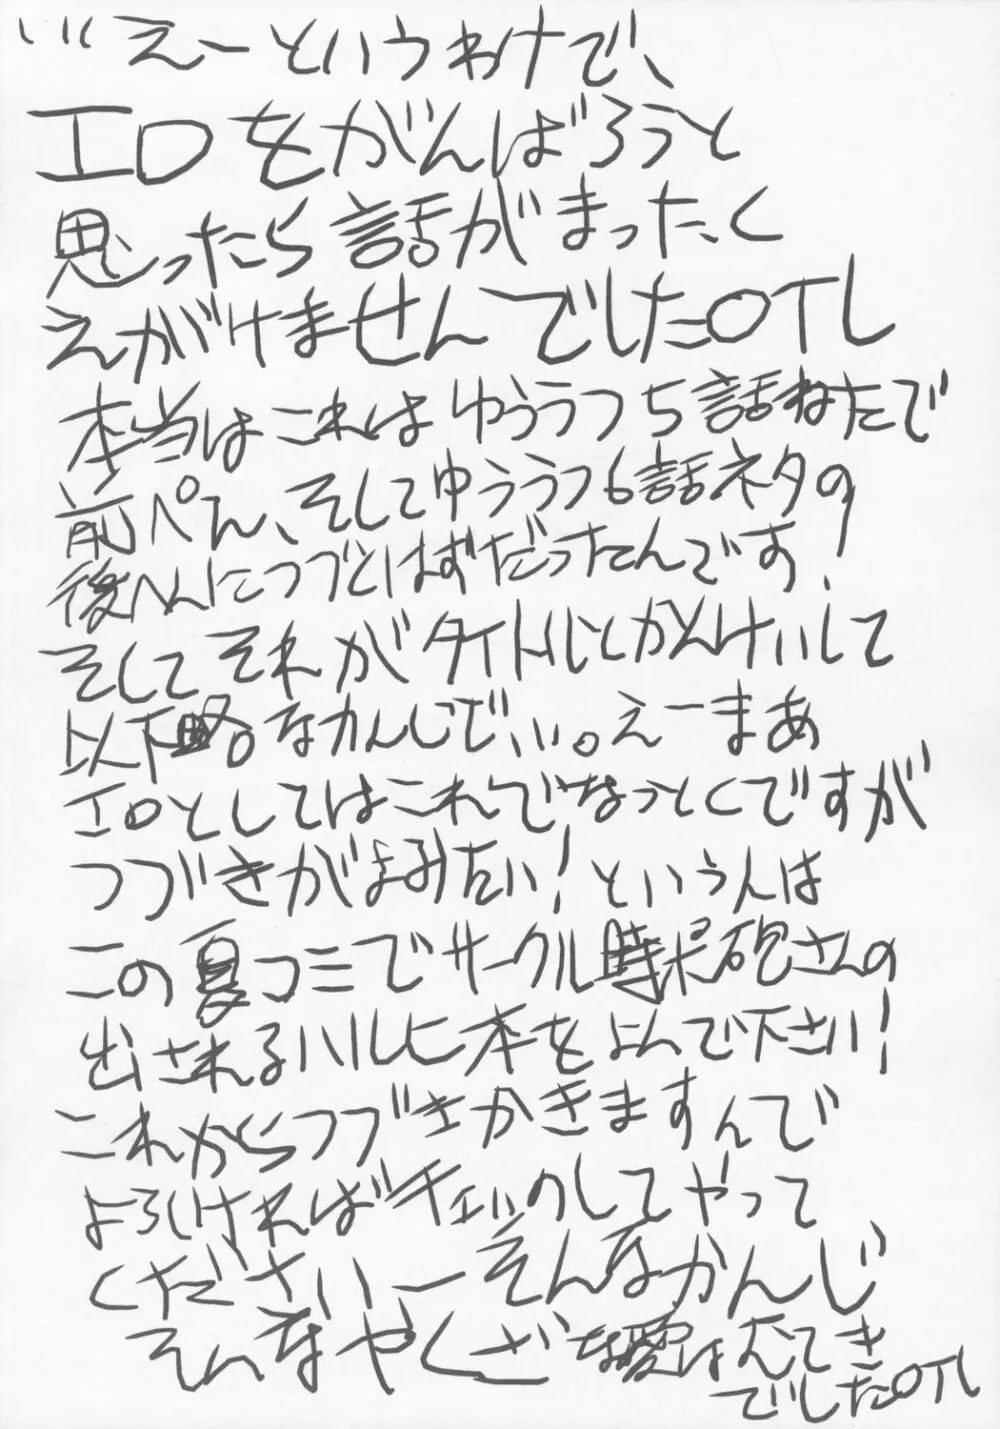 …えーというわけで、
エロをがんばろうと
思ったら話がまったく
えがけませんでしたOTL
本当はこれはゆううつ5話ねたで
前ぺん、そしてゆううつ6話ネタの
後へんにつづくはずだったんです!
そしてそれがタイトルとかんけいして
以下略。なかんじで…。えーまあ
エロとしてはこれでなっとくですが
つづきがよみたい!という人は
この夏コミでサークル 砲さんの
出されるハルヒ本をよんで下さい!
これからつづきかきますんで
よろしければチェックしてやって
くださいーそんなかんじ
そんなやくざな愛はむてき
でしたOTL